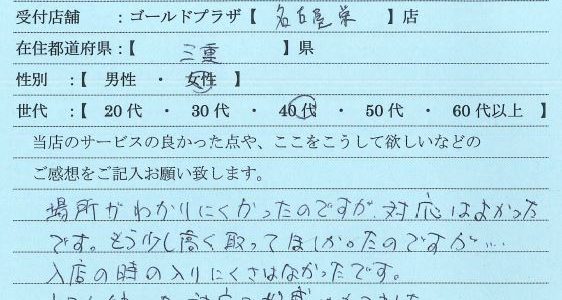 受付店舗　：ゴールドプラザ【　名古屋栄　】店
在住都道府県：【　三重　】県
性別　：【　男性　・　女性　】
世代　：【　20代　・　30代　・　40代　・　50代　・　60代以上　】
当店のサービスの良かった点や、ここをこうして欲しいなどの
ご感想をご記入お願い致します。
場所がわかりにくかったのですが、対応はよかった
です。もう少し高く取ってほしかったのですが…
入店の時の入りにくさはなかったです。